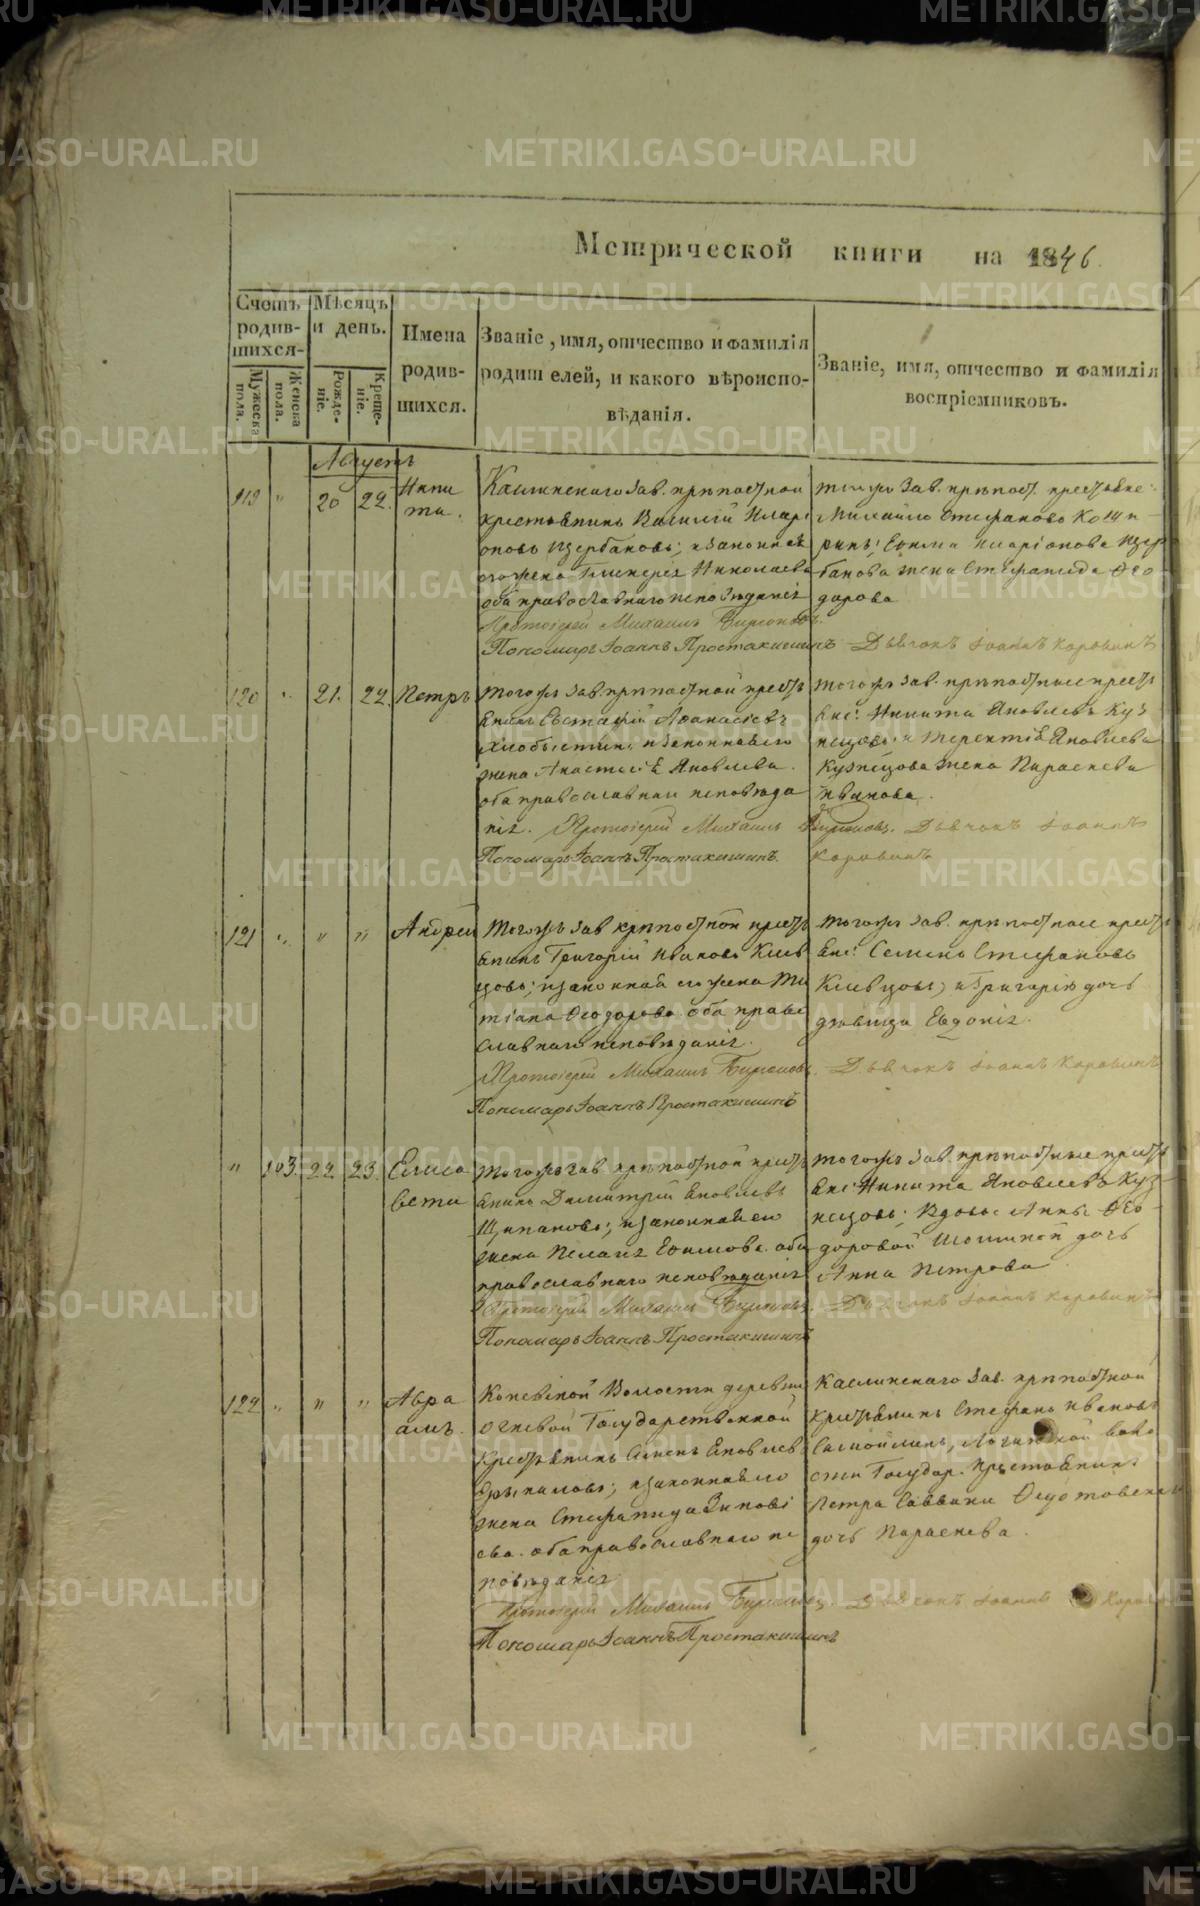 Метрической книги на 1846.
Счотъ родив-шихся-
Мѣсяцъ и день.
Имена родив-шихся.
Званіе, имя, отчество и фамилія
родителей, и какого вѣроиспо-
вѣданія.
Званіе, имя, отчество и фамилія
воспріемниковъ.
Мужеска пола.
Женска пола.
Рожде-ніе.
Креще-ніе.
Августъ
119 " 20 22. Ники
та.
Каслинскаго зав. крѣпостной
крестьянинъ Василій Илларі
оновъ Щербаковъ; и законная
его жена Гликерія Николаева
оба православнаго исповѣданія
Протоіерей Михаилъ Бирюковъ.
Пономарь Іоаннъ Простакишинъ
тогожъ зав. крѣпост. крестьяне:
Михайло Стефановъ
Илларіонова Щер
бакова жена Стефанида Ѳео
дорова
Дьячокъ Іоаннъ Коровинъ
120 " 21. 22. Петръ
Тогожъ зав. крѣпостной кресть
янинъ Евстафій Афанасіевъ
Хлобыстинъ; и законная его
жена Анастасія Яковлева.
оба православнаго исповѣда
нія. Протоіерей Михаилъ Бирюковъ.
Пономарь Іоаннъ Простакишинъ.
Тогожъ зав. крѣпостные кресть
яне: Никита Яковлевъ Куз
нецовъ; и Терентія Яковлева
Кузнецова жена Параскева
Иванова.
Дьячокъ Іоаннъ
Коровинъ
121 " " " Андрей
Тогожъ зав. крѣпостной кресть
янинъ Григорій Ивановъ Клев
цовъ; и законная его жена Та
тіана Ѳеодорова. оба право
славнаго исповѣданія.
Протоіерей Михаилъ Бирюковъ.
Пономарь Іоаннъ Простакишинъ
Тогожъ зав. крѣпостные кресть
яне: Семенъ Стефановъ
Клевцовъ; и Григорія дочь
дѣвица Евдокія.
Дьячокъ Іоаннъ Коровинъ
" 103. 22 23. Елиса
вета
Тогожъ зав. крѣпостной кресть
янинъ Димитрій Яковлевъ
Щипановъ; и законная его
жена Пелагія Ефимова. оба
православнаго исповѣданія
Протоіерей Михаилъ Бирюковъ.
Пономарь Іоаннъ Простакишинъ
Тогожъ зав. крѣпостные кресть
яне: Никита Яковлевъ Куз-
нецовъ; Вдовы Анны Ѳео-
доровой дочь
Анна Петрова
Дьячокъ Іоаннъ Коровинъ
122 " " " Авра
амъ.
Волости деревни
Огневой Государственной
Крестьянинъ Семенъ Яковлевъ
и законная его
жена Стефанида Зиновь
ева. оба православнаго ис
повѣданія
Протоіерей Михаилъ Бирюковъ.
Пономарь Іоаннъ Простакишинъ
Каслинскаго зав. крѣпостной
крестьянинъ Стефанъ Ивановъ
воло
сти Государ. крестьянина
Петра Саввина
дочь Параскева.
Дьячокъ Іоаннъ Коровинъ
METRIKI.GASO-URAL.RU